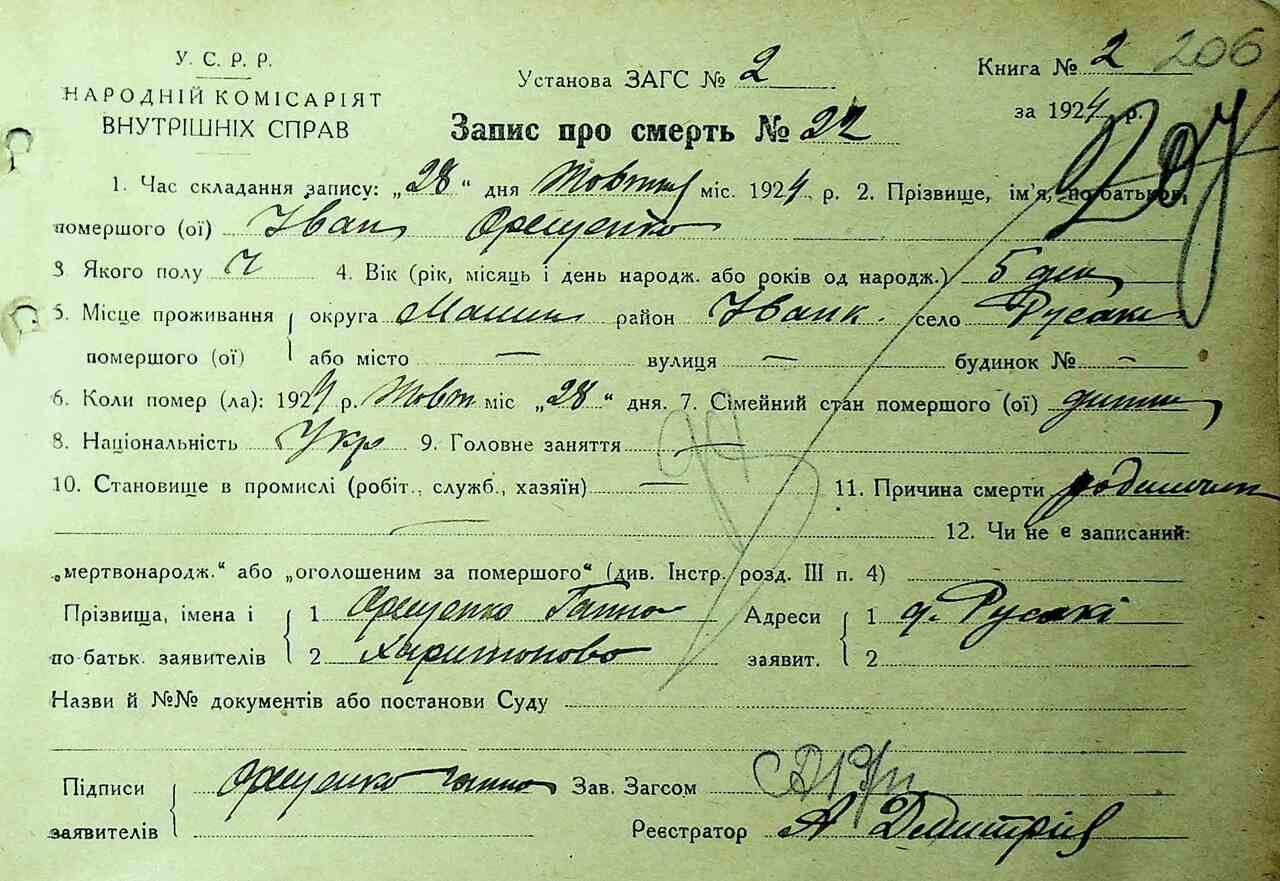 У. С. Р. Р.
НАРОДНІЙ КОМІСАРІЯТ
ВНУТРІШНІХ СПРАВ
Установа ЗАГС № 2
Книга № 2 206
за 1924 р.
Запис про смерть № 22
1. Час складання запису: „28“ дня Жовтня міс. 1924 р. 2. Прізвище, ім'я, по батькові,
помершого (ої) Іван Орещенко
3 Якого полу Ч 4. Вік (рік, місяць і день народж. або років од народж.) 5 ден
5. Місце проживання округа Малин район Іванк. село Русаки
помершого (ої) або місто — вулиця — будинок № —
6. Коли помер (ла): 1924 р. Жовт міс „28“ дня. 7. Сімейний стан помершого (ої)
8. Національність Укр 9. Головне заняття —
10. Становище в промислі (робіт., служб., хазяїн) — 11. Причина смерти
12. Чи не є записаний:
„мертвонародж.“ або „оголошеним за помершого“ (див. Інстр. розд. III п. 4)
Прізвища, імена і 1 Орещенко Ганна Адреси 1 д. Русакі
по батьк. заявителів 2 Харитоново заявит. 2
Назви й №№ документів або постанови Суду
Підписи Орещенко Ганна Зав. Загсом
заявителів Реєстратор А Демитрів